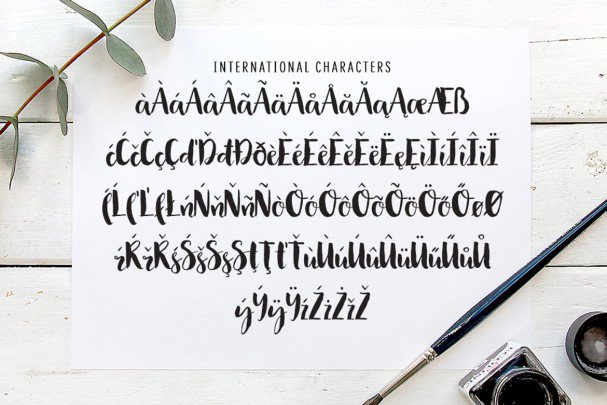 INTERNATIONAL CHARACTERS
àÀáÁâÂãÃäÄåÅăĂąĄæÆß
ćĆčČçÇďĎđĐðèÈéÉêÊěĚëËęĘìÌíÍîÎïÏ
ĺĹľĽłŁńŃňŇñÑòÒóÓôÔõÕöÖőŐøØ
ŕŔřŘśŚšŠşŞţŢťŤùÙúÚûÛüÜűŰůŮ
ýÝÿŸźŹżŻžŽ